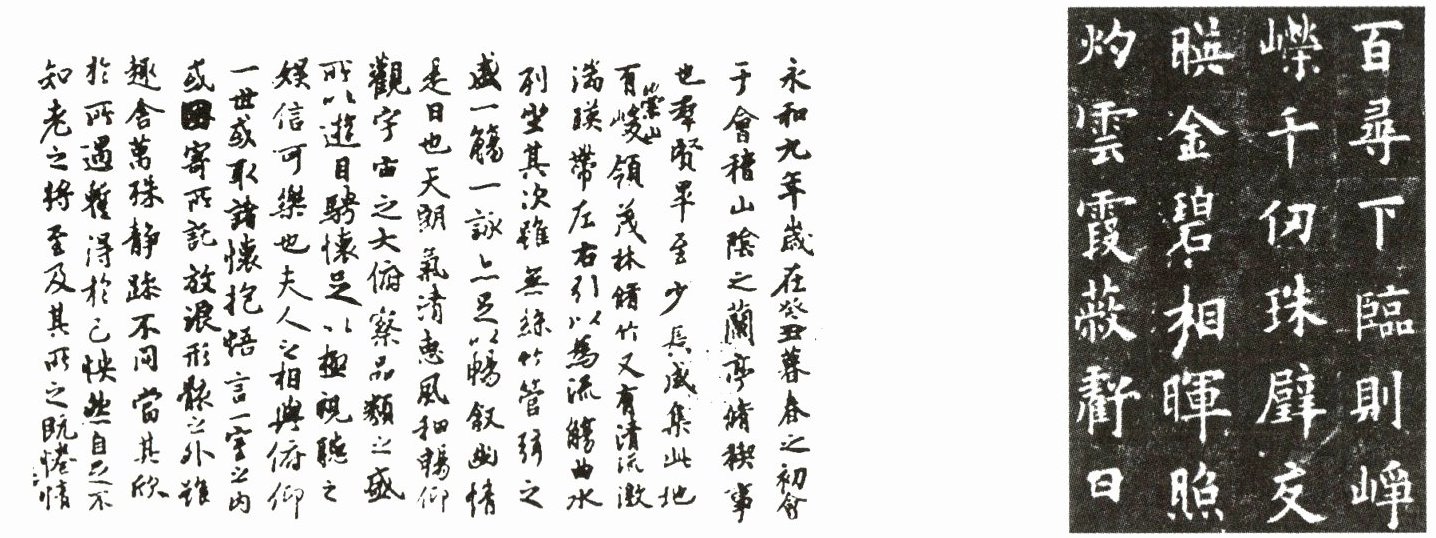 百尋下臨則崢
嶸千仞珠璧交
暎金碧相暉照
灼雲霞蔽虧日
永和九年歲在癸丑暮春之初會
于會稽山陰之蘭亭脩稧事
也羣賢畢至少長咸集此地
有崇山峻領茂林脩竹又有清流激
湍暎帶左右引以為流觴曲水
列坐其次雖無絲竹管弦之
盛一觴一詠亦足以暢敘幽情
是日也天朗氣清惠風和暢仰
觀宇宙之大俯察品類之盛
所以遊目騁懷足以極視聽之
娛信可樂也夫人之相與俯仰
一世或取諸懷抱悟言一室之內
或因寄所託放浪形骸之外雖
趣舍萬殊靜躁不同當其欣
於所遇暫得於己怏然自足不
知老之將至及其所之既惓情